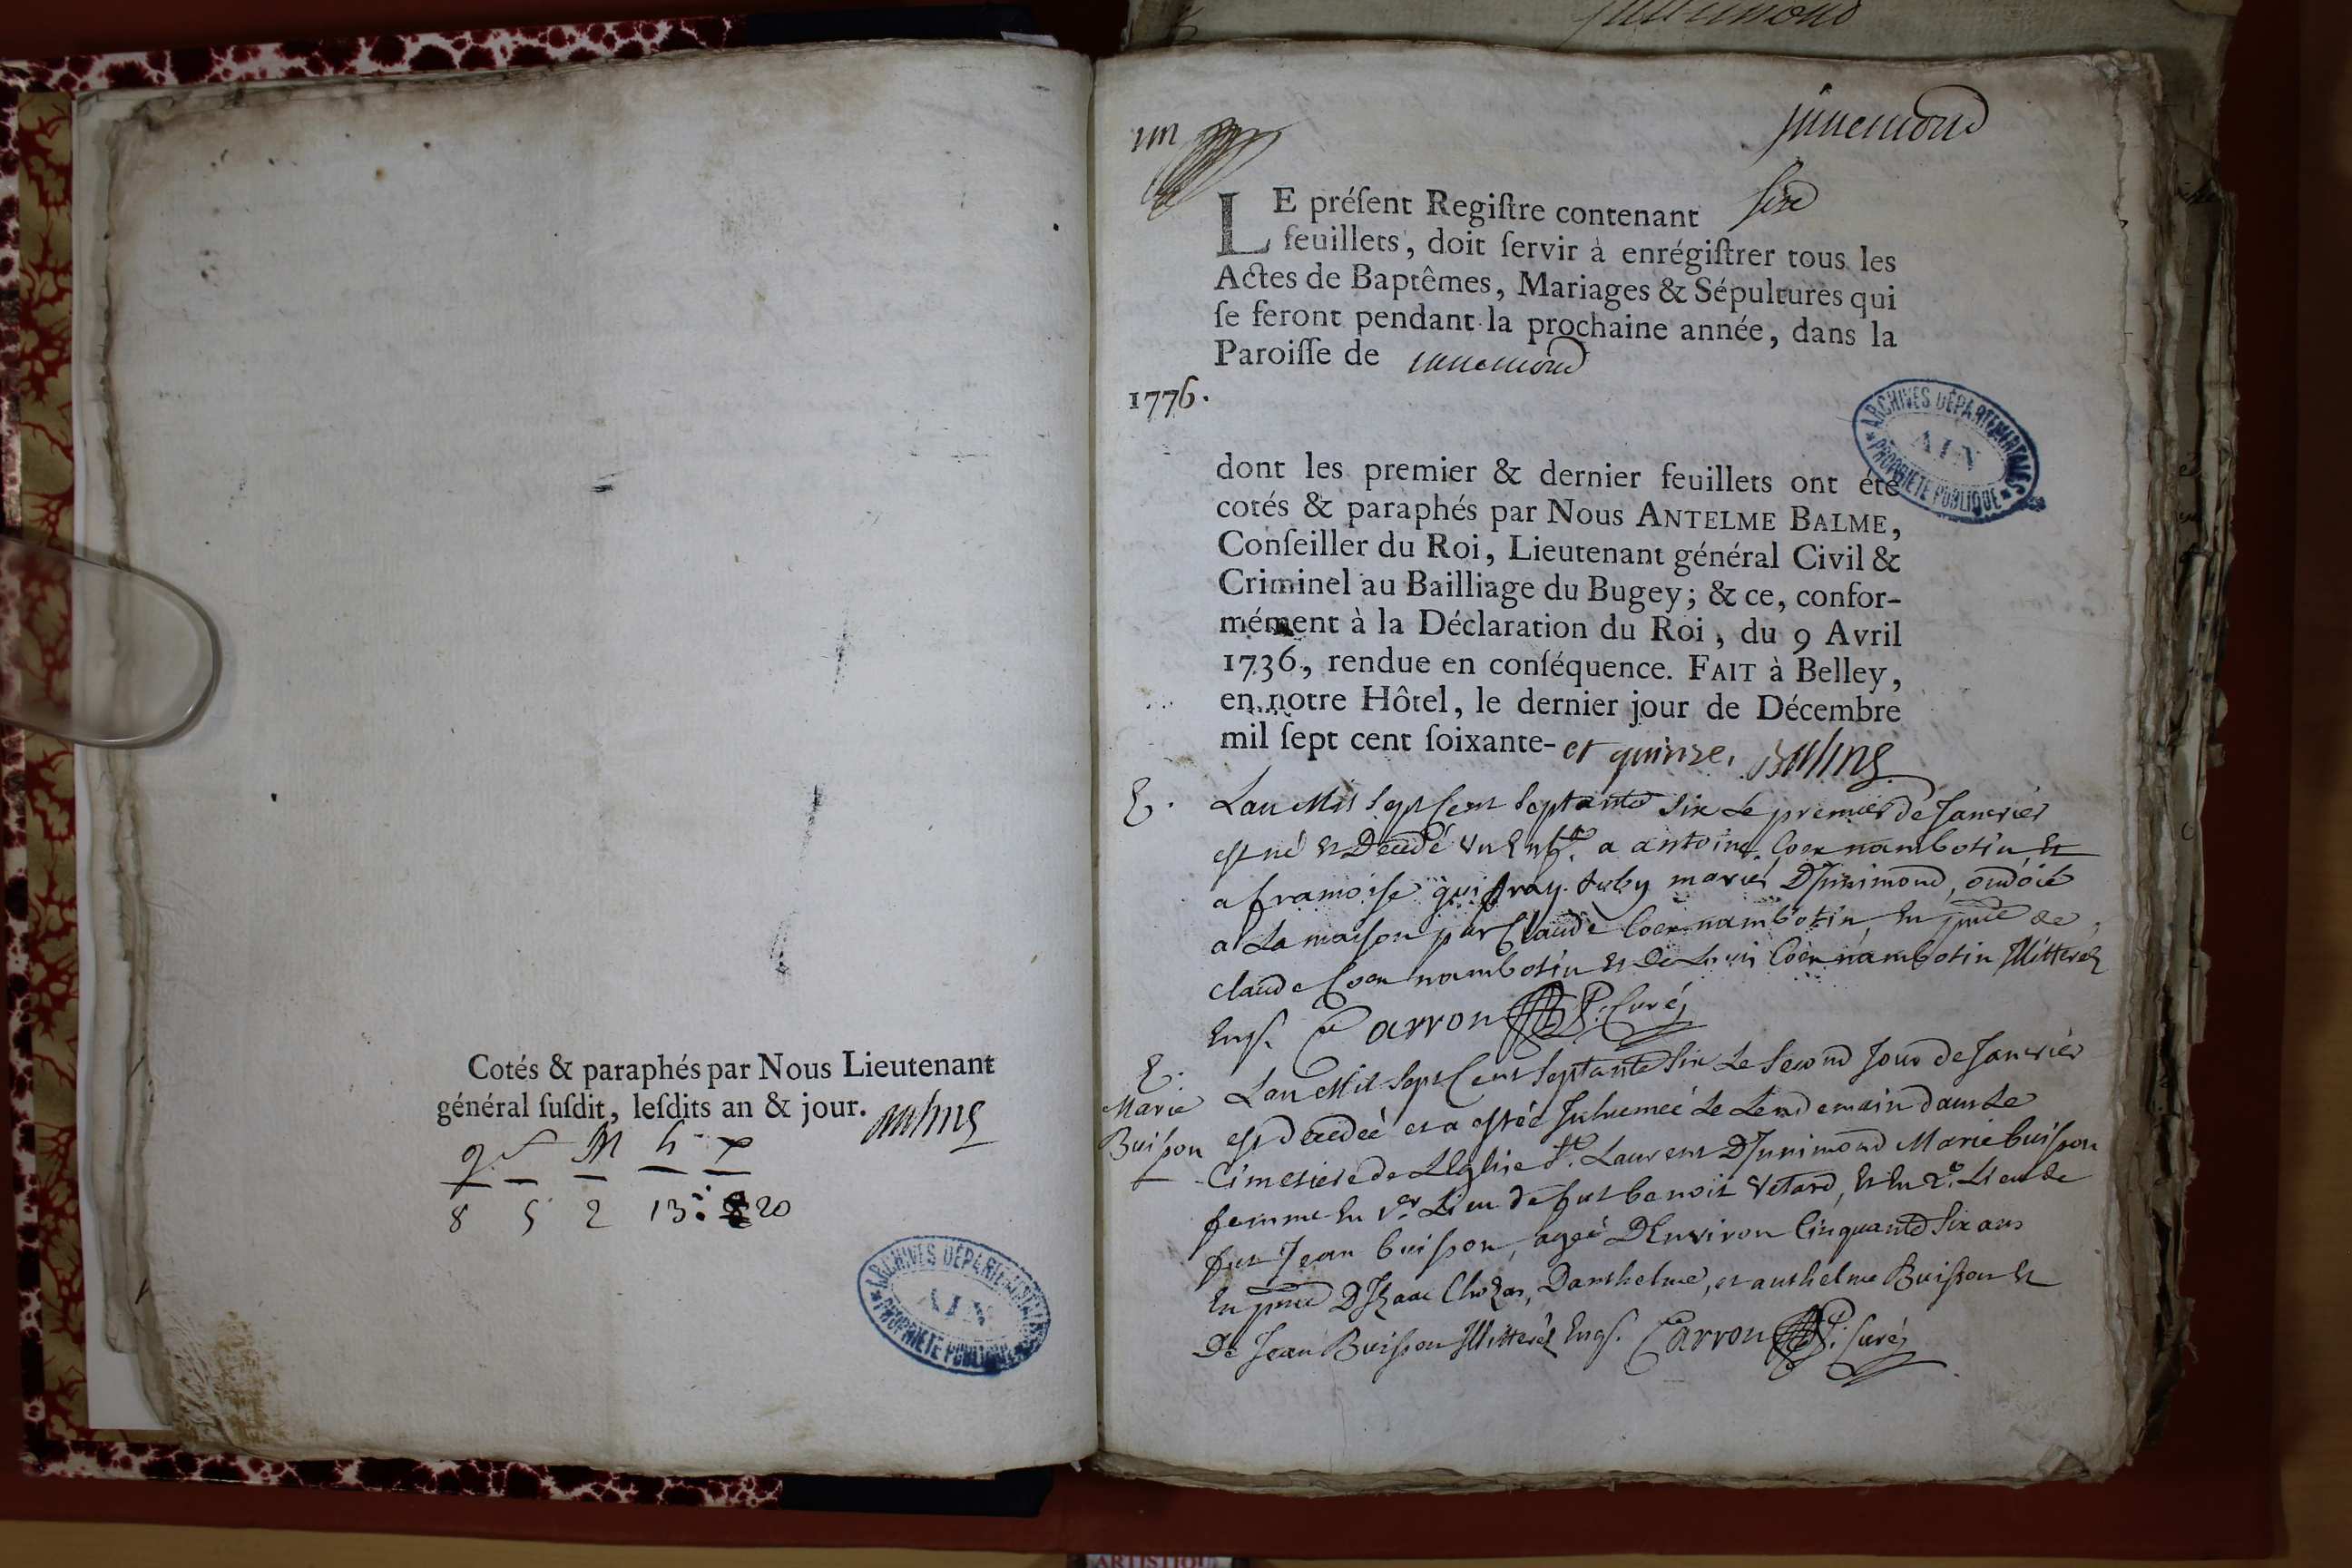 Cotés & paraphés par Nous Lieutenant
général ſuſdit, leſdits an & jour. Balme
8 5 2 13 : 20
ARCHIVES DÉPARTEMENTALES
AIN
PROPRIÉTÉ PUBLIQUE
un
junemond
LE préſent Regiſtre contenant six
feuillets, doit ſervir à enrégiſtrer tous les
Actes de Baptêmes, Mariages & Sépultures qui
ſe feront pendant la prochaine année, dans la
Paroiſſe de innemond
1776.
ARCHIVES DÉPARTEMENTALES
AIN
PROPRIÉTÉ PUBLIQUE
dont les premier & dernier feuillets ont été
cotés & paraphés par Nous ANTELME BALME,
Conſeiller du Roi, Lieutenant général Civil &
Criminel au Bailliage du Bugey; & ce, confor-
mément à la Déclaration du Roi, du 9 Avril
1736, rendue en conſéquence. FAIT à Belley,
en notre Hôtel, le dernier jour de Décembre
mil ſept cent ſoixante- et quinze. Balme
E. Lan Mil Sept Cent Septante Six Le premier de Janvier
est né Et Décédé Un Enft. a antoine Coer nambotin Et
a framoise quifray Juby mariés DJnnimond, ondoié
a La maison par Claude Coer nambotin, En pnce de
Claude Coer nambotin Et De Louis Coer nambotin Jllitterés
Enqs. Carron P. Curé
E. Lan Mil Sept Cent Septante Six Le Second Jour de Janvier
Marie
Buisson
est décédée et a estée Jnhumée Le Lendemain dans Le
Cimetiere de LEglise St. Laurent DJnnimond Marie buisson
femme En 1er Lieu de fut benoit Vetard, Et En 2e. Lieu de
fut Jean buisson, agée DEnviron Cinquante Six ans
En pnce DJsaac Danthelme, et anthelme Buisson Et
De Jean Buisson Jllitterés Enqs. Carron P. Curé
ARTISTIQUE